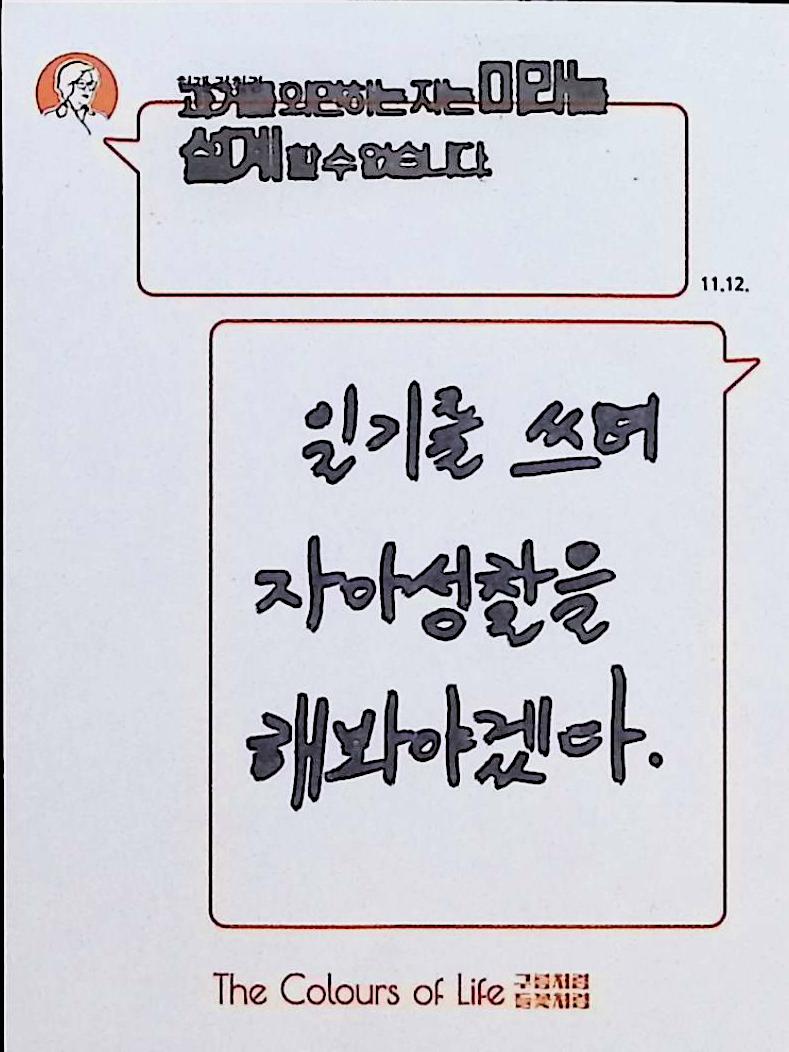 과거를 외면하는 자는 미래를
설계 할 수 없습니다.
11.12.
일기를 쓰며
자아성찰을
해봐야겠다.
The Colours of Life 구름처럼
들꽃처럼